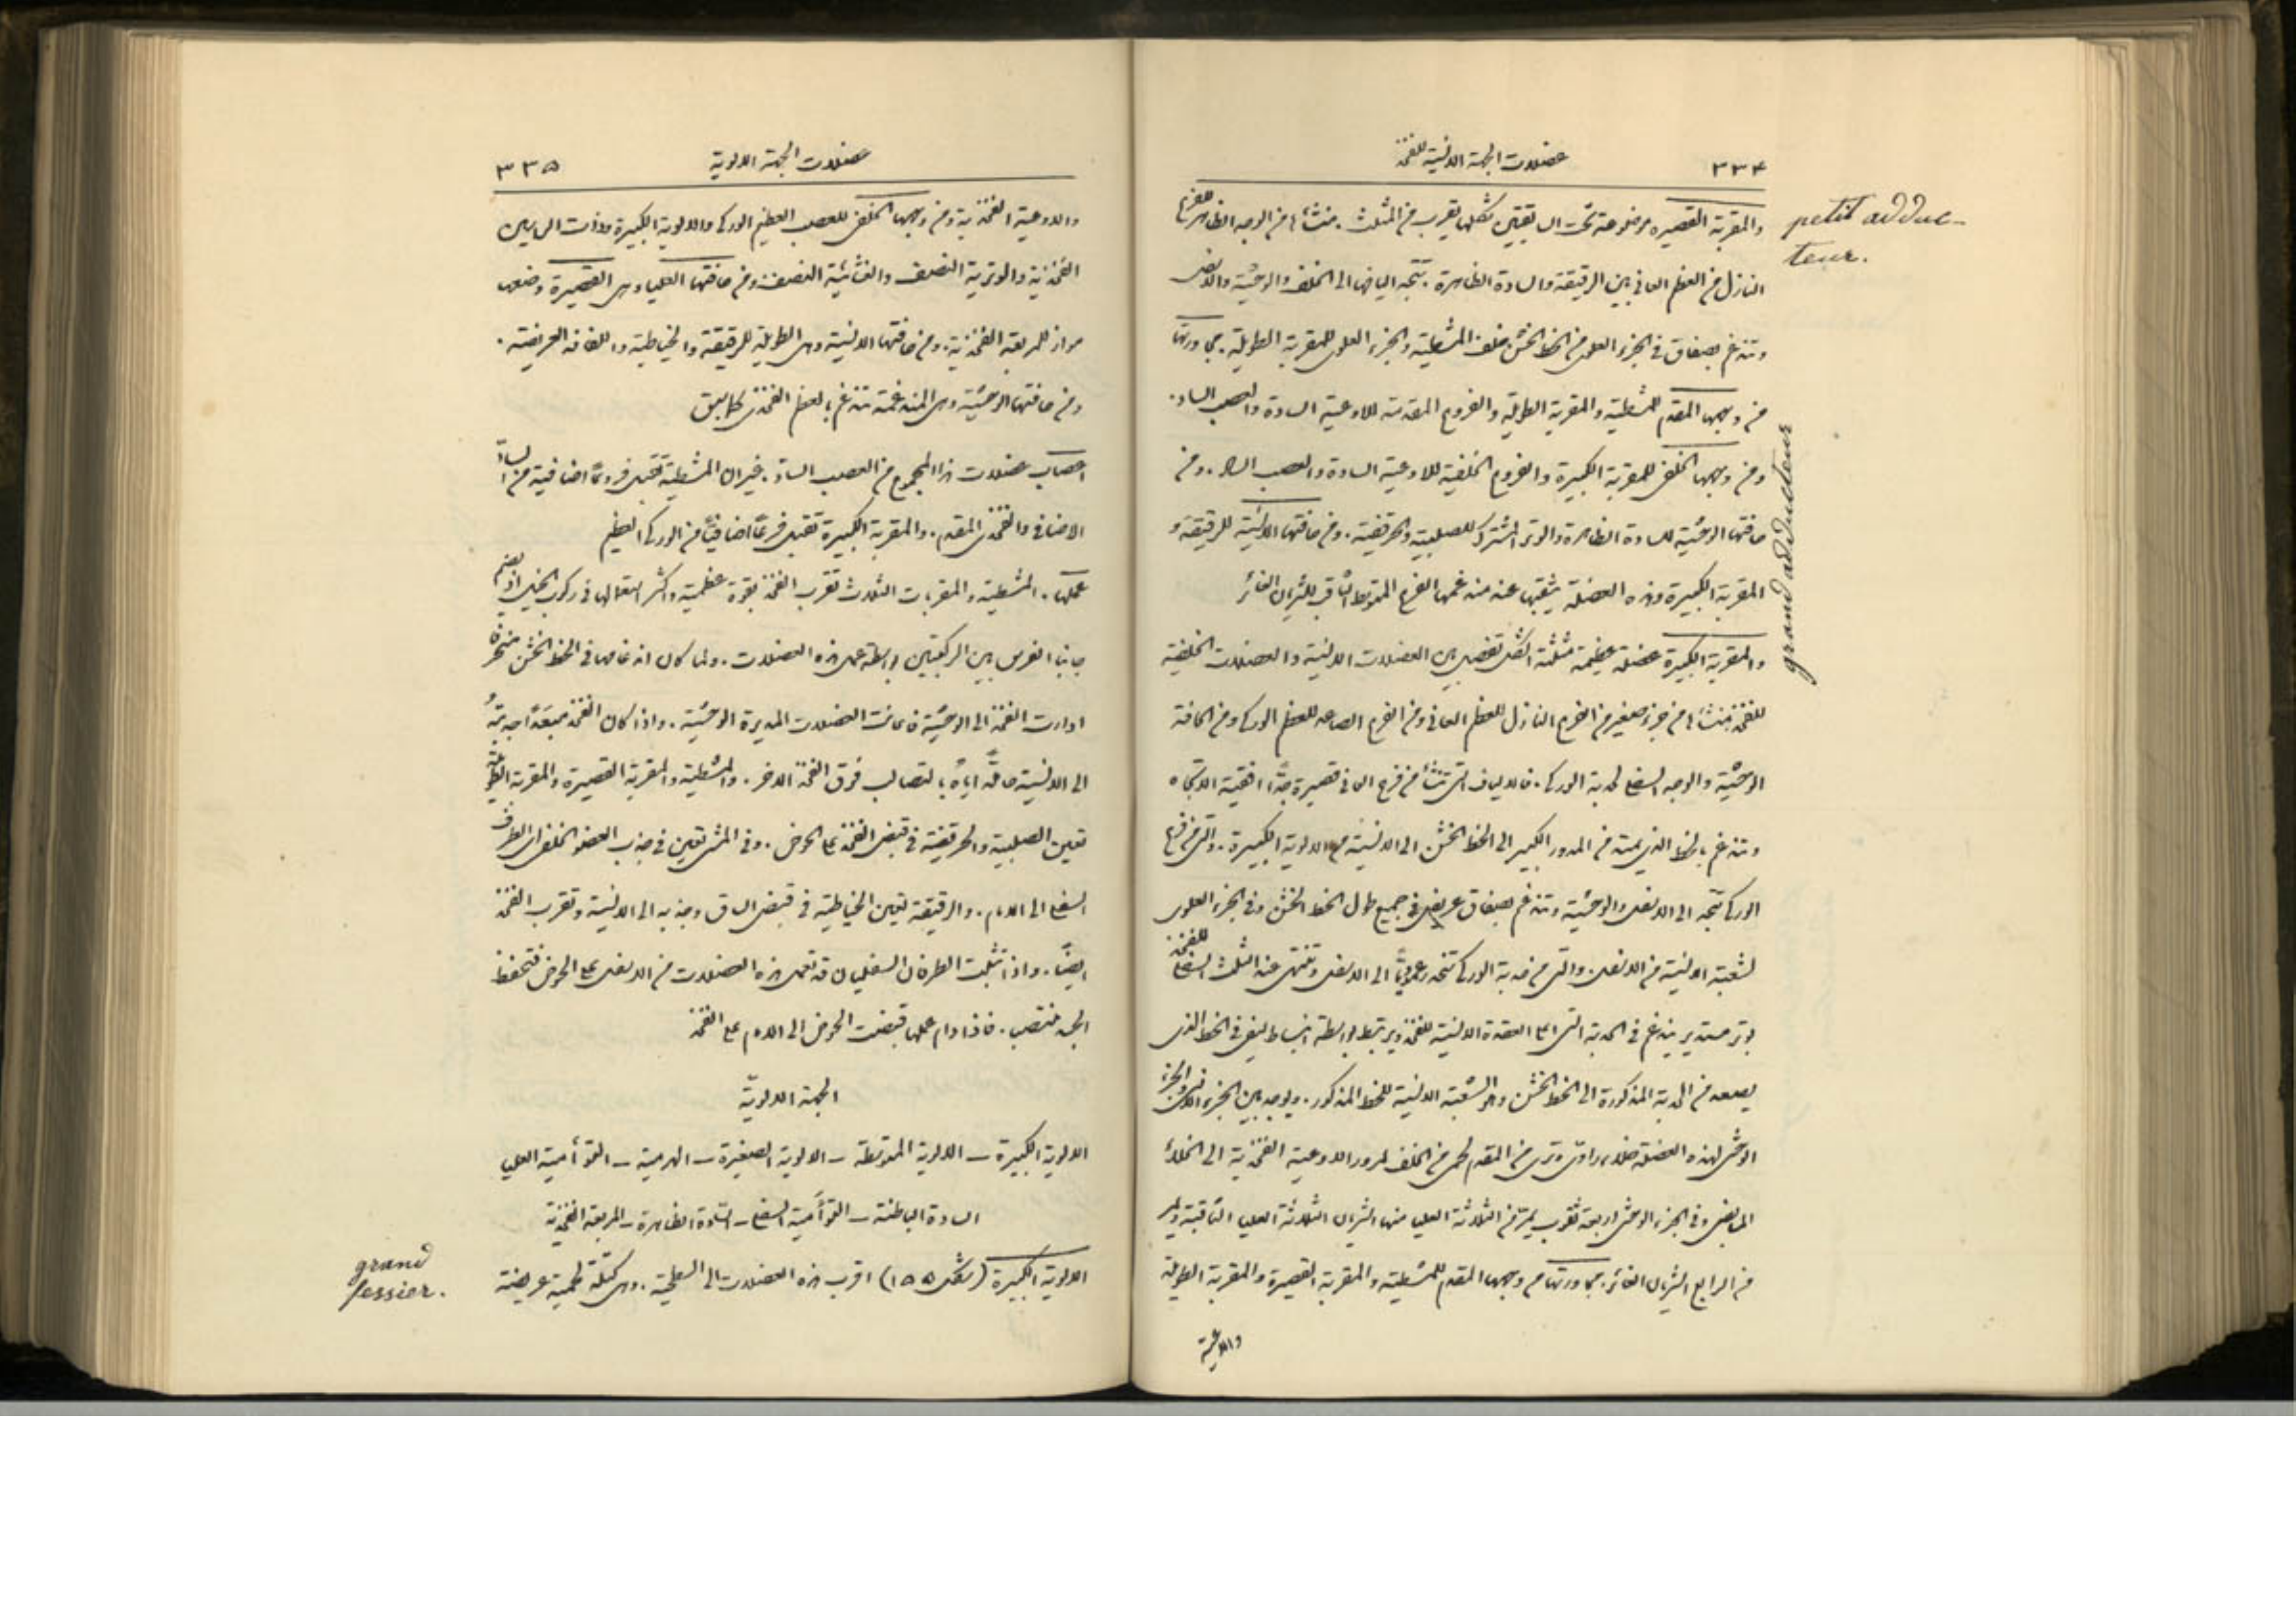 ٣٣٤ عضلات الجهة الانسية للفخذ
petit adduc-
teur.
والمقربة القصيرة موضوعة تحت السابقتين شكلها يقرب من المثلث. منشأها من الوجه الظاهر للفرع
النازل من العظم العاني بين الرقيقة والسادة الظاهرة. تتجه اليافها الى الخلف والوحشية والاسفل
وتندغم بصفاق في الجزء العلوي من الخط الخشن خلف المشطية والجزء العلوي للمقربة الطويلة. مجاورتها
من وجهها المقدم للمشطية والمقربة الطويلة والفروع المقدمة للاوعية السادة والعصب الساد.
ومن وجهها الخلفي للمقربة الكبيرة والفروع الخلفية للاوعية السادة والعصب الساد. ومن
حافتها الوحشية للسادة الظاهرة والوتر المشترك للصلبية والحرقفية. ومن حافتها الانسية للرقيقة و
المقربة الكبيرة وهذه العضلة يثقبها عند مندغمها الفرع المتوسط الثاقب للشريان الغائر
grand adducteur
والمقربة الكبيرة عضلة عظيمة مثلثة الشكل تفصل بين العضلات الانسية والعضلات الخلفية
للفخذ منشأها من جزء صغير من الفرع النازل للعظم العاني ومن الفرع الصاعد للعظم الوركي ومن الحافة
الوحشية والوجه السفلي لحدبة الوركي. فالالياف التي تنشأ من فرع العاني قصيرة جدًا افقية الاتجاه
وتندغم بالخط الذي يمتد من المدور الكبير الى الخط الخشن الى الانسية من الالوية الكبيرة. والتي من فرع
الوركي تتجه الى الاسفل والوحشية وتندغم بصفاق عريض في جميع طول الخط الخشن وفي الجزء العلوي
لشعبته الانسية من الاسفل. والتي من حدبة الوركي تنحدر عموديًا الى الاسفل وتنتهي عند الثلث السفلي للفخذ
بوتر مستدير يندغم في الحدبة التي اعلى العقدة الانسية للفخذ ويرتبط بواسطة انبساط ليفي في الخط الذي
يصعد من الحدبة المذكورة الى الخط الخشن وهو الشعبة الانسية للخط المذكور. ويوجد بين الجزء الانسي والجزء
الوحشي لهذه العضلة خلاء زاوي وتري من المقدم لحمي من الخلف لمرور الاوعية الفخذية الى الخلاء
المابضي وفي الجزء الوحشي اربعة ثقوب يمر من الثلاثة العليا منها الشريان الثلاثة العليا الثاقبة ويمر
من الرابع الشريان الغائر. مجاورتها من وجهها المقدم للمشطية والمقربة القصيرة والمقربة الطويلة
والاوعية
عضلات الجهة الالوية ٣٣٥
والاوعية الفخذية ومن وجهها الخلفي للعصب العظيم الوركي والالوية الكبيرة وذات الراسين
الفخذية والوترية النصف والغشائية النصف ومن حافتها العليا وهي القصيرة وضعها
مواز للمربعة الفخذية. ومن حافتها الانسية وهي الطويلة للرقيقة والخياطية واللفافة العريضة.
ومن حافتها الوحشية وهي المندغمة تندغم بالعظم الفخذي كما سبق
اعصاب عضلات هذا المجموع من العصب الساد. غير ان المشطية تقبل فروعًا اضافية من الساد
الاضافي والفخذي المقدم. والمقربة الكبيرة تقبل فرعًا اضافيًا من الوركي العظيم
عملها. المشطية والمقربات الثلاث تقرب الفخذ بقوة عظيمة واكثر استعمالها في ركوب الخيل اذ يضم
جانبا الفرس بين الركبتين بواسطة عمل هذه العضلات. ولما كان اندغامها في الخط الخشن منحرفًا
ادارت الفخذ الى الوحشية فاعانت العضلات المديرة الوحشية. واذا كان الفخذ مبعدًا جذبته
الى الانسية حاملةً اياه بالتصالب فوق الفخذ الآخر. والمشطية والمقربة القصيرة والمقربة الطويلة
تعين الصلبية والحرقفية في قبض الفخذ على الحوض. وفي المشي تعين في جذب العضو الخلفي اي الطرف
السفلي الى الامام. والرقيقة تعين الخياطية في قبض الساق وجذبه الى الانسية وتقرب الفخذ
ايضًا. واذا تثبت الطرفان السفليان قد تعمل هذه العضلات من الاسفل على الحوض فتحفظ
الجسد منتصب. فاذا دام عملها قبضت الحوض الى الامام على الفخذ
الجهة الالوية
الالوية الكبيرة ـ الالوية المتوسطة ـ الالوية الصغيرة ـ الهرمية ـ التوأمية العليا
السادة الباطنة ـ التوأمية السفلى ـ السادة الظاهرة ـ المربعة الفخذية
grand
fessier.
الالوية الكبيرة (شكل ١٥٥) اقرب هذه العضلات الى السطحية. وهي كتلة لحمية عريضة